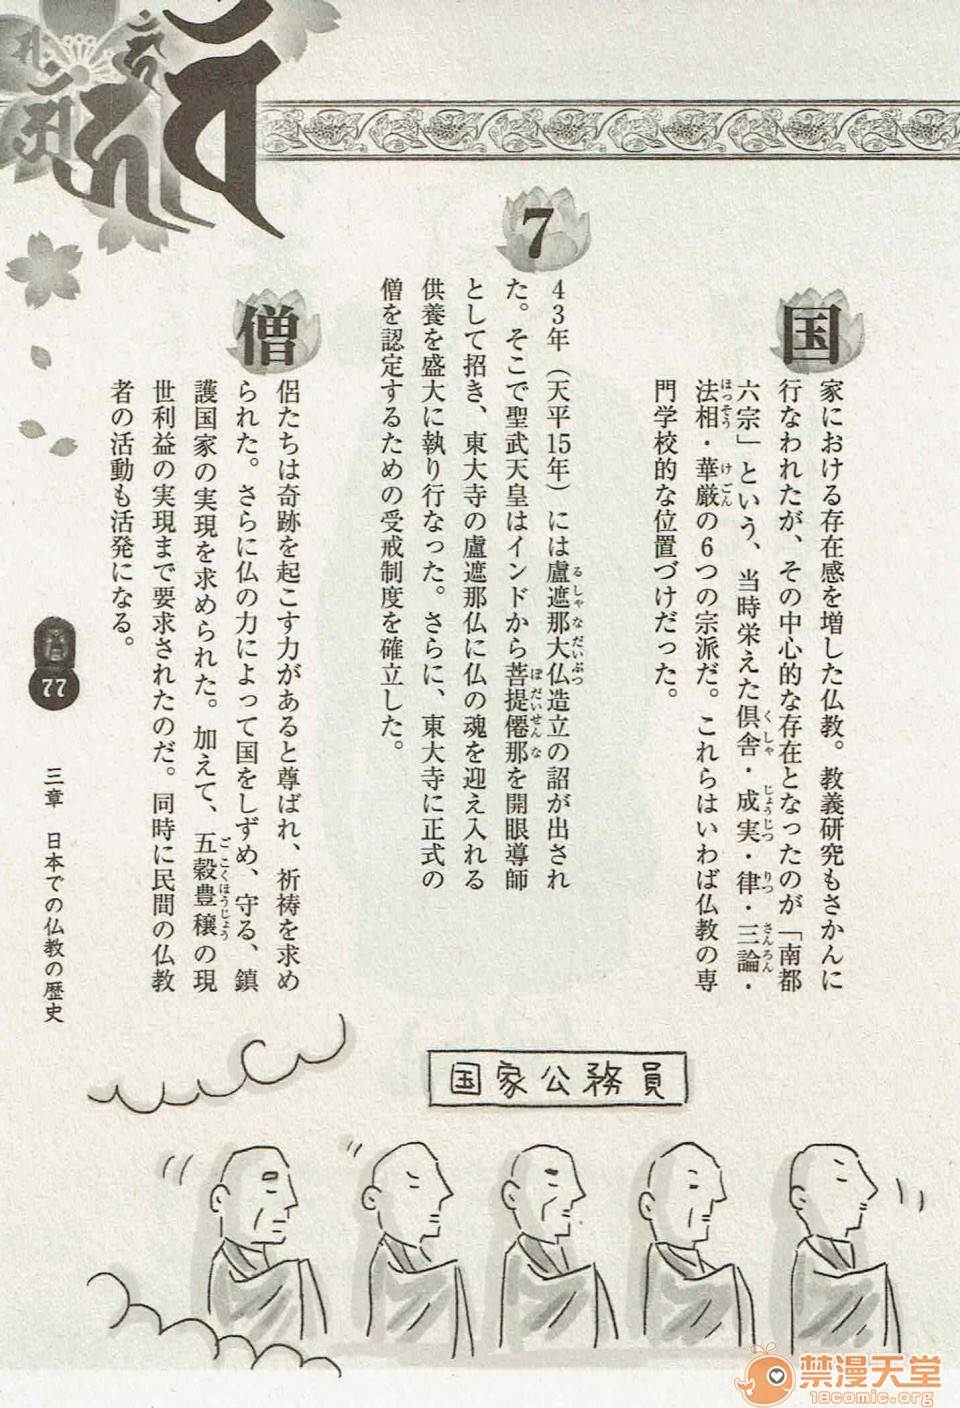 国家における存在感を増した仏教。教義研究もさかんに
行なわれたが、その中心的な存在となったのが「南都
六宗」という、当時栄えた倶舎・成実・律・三論・
法相・華厳の6つの宗派だ。これらはいわば仏教の専
門学校的な位置づけだった。
743年（天平15年）には盧遮那大仏造立の詔が出され
た。そこで聖武天皇はインドから菩提僊那を開眼導師
として招き、東大寺の盧遮那仏に仏の魂を迎え入れる
供養を盛大に執り行なった。さらに、東大寺に正式の
僧を認定するための受戒制度を確立した。
僧侶たちは奇跡を起こす力があると尊ばれ、祈祷を求め
られた。さらに仏の力によって国をしずめ、守る、鎮
護国家の実現を求められた。加えて、五穀豊穣の現
世利益の実現まで要求されたのだ。同時に民間の仏教
者の活動も活発になる。
77
三章　日本での仏教の歴史
国家公務員
禁漫天堂
18comic.org